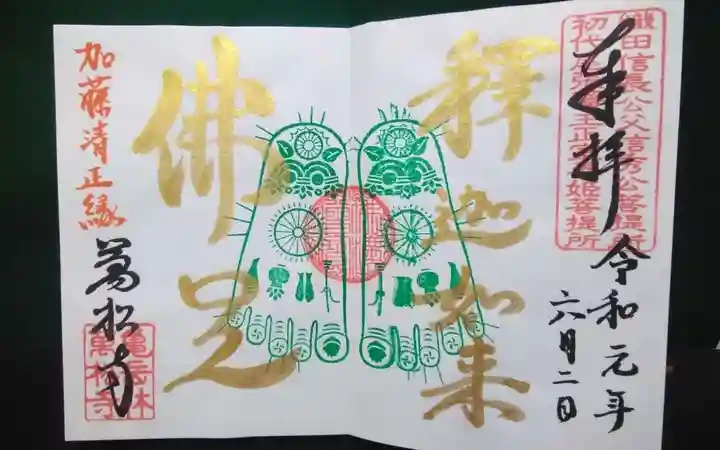 奉拝
令和元年
六月二日
釋迦如来
佛足
加藤清正縁
萬松寺
織田信長公父信秀公菩提所
亀岳林
萬松寺